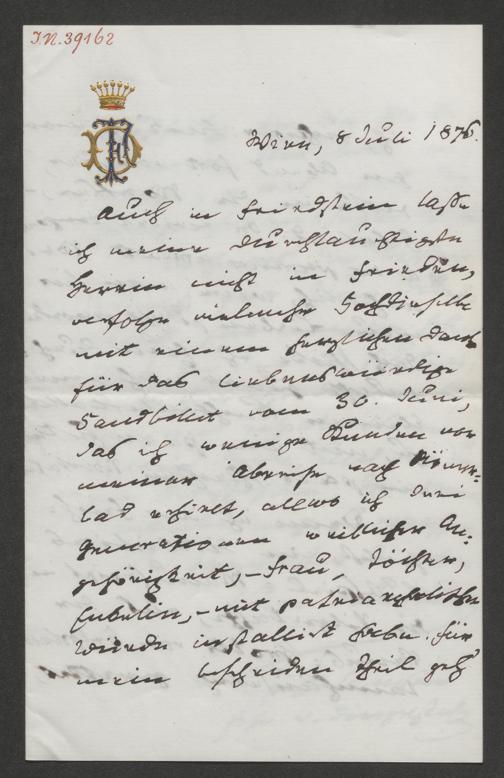 I.N. 39162
Wien, 8 Juli 1876.
Auch in Friedstein lasse
ich meine Durchlauchtigste
Herrin nicht in Frieden,
verfolge vielmehr Hochdieselbe
mit einem herzlichen Dank
für das liebenswürdige
Handbillet vom 30. Juni,
das ich wenige Stunden vor
meiner Abreise nach Römer-
bad erhielt, allwo ich drei
Generationen weiblicher An-
gehörigkeit, – Frau, Töchter,
Enkelin, – mit patriarchalischer
Würde installirt habe. Für
mein bescheiden Theil geh'